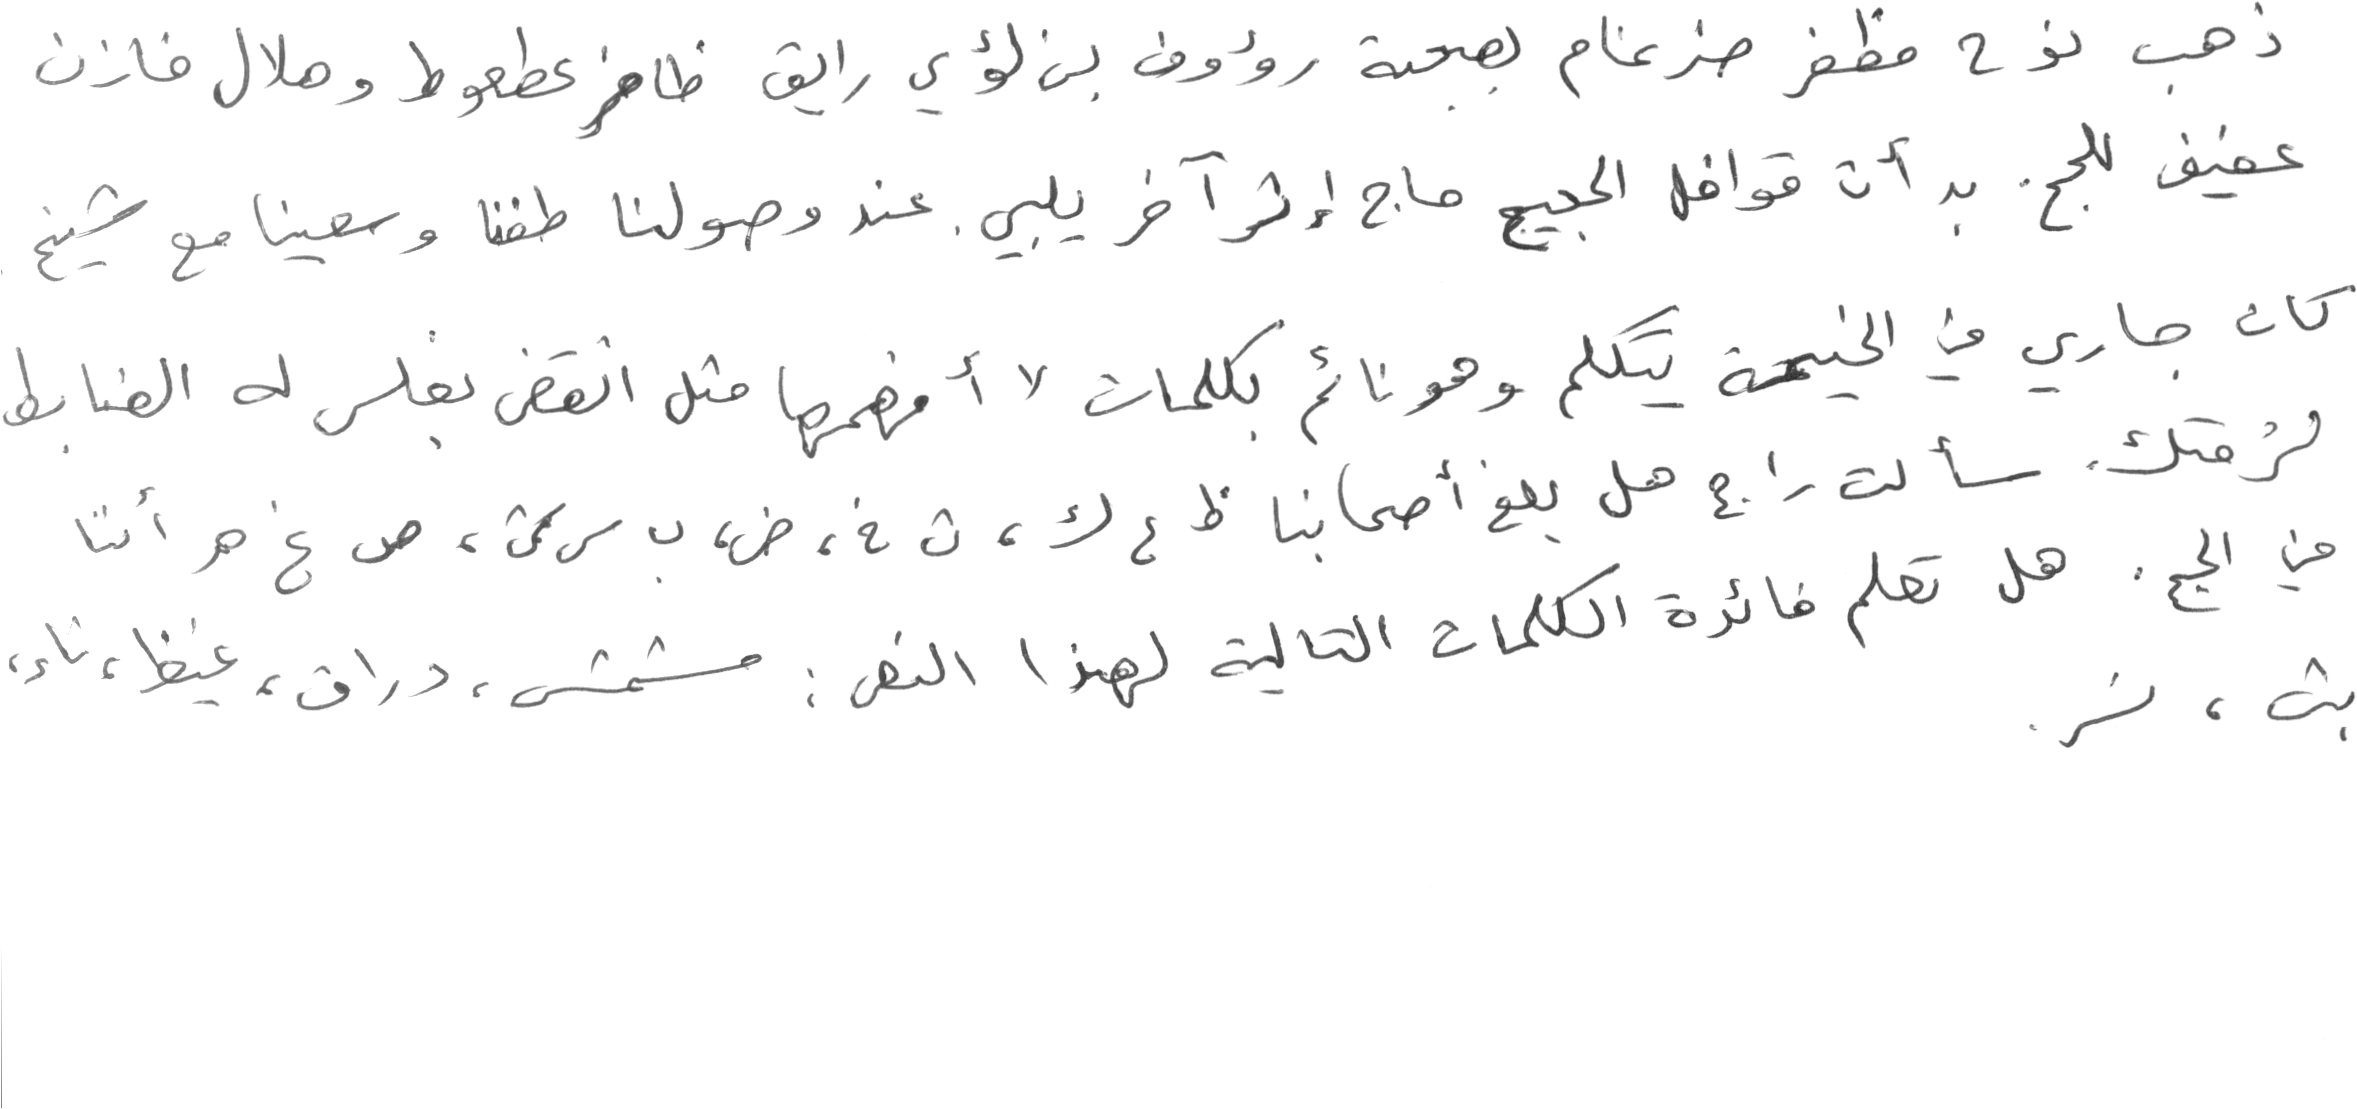 ذهب نوح مظفر ضرغام بصحبة رؤوف بن لؤي رايق ظافر عطعوط وهلال فازن
عفيف للحج. بد أن قوافل الحجيج ماج إثر آخر يلبي. عند وصولنا طفنا وسعينا مع شيخ
كان جاري في الخيمة يتكلم وهو نائم بكلمات لا أفهمها مثل انقض بغلس له الضابط
لزمتك. سألت راجح هل بلغ أصحابنا ظ ع ك، ث خ، ض، ب س ش، ص غ هـ أننا
في الحج. هل تعلم فائدة الكلمات التالية لهذا النص: مشمش، دراق، غيظ، ناء،
بث، نسر.